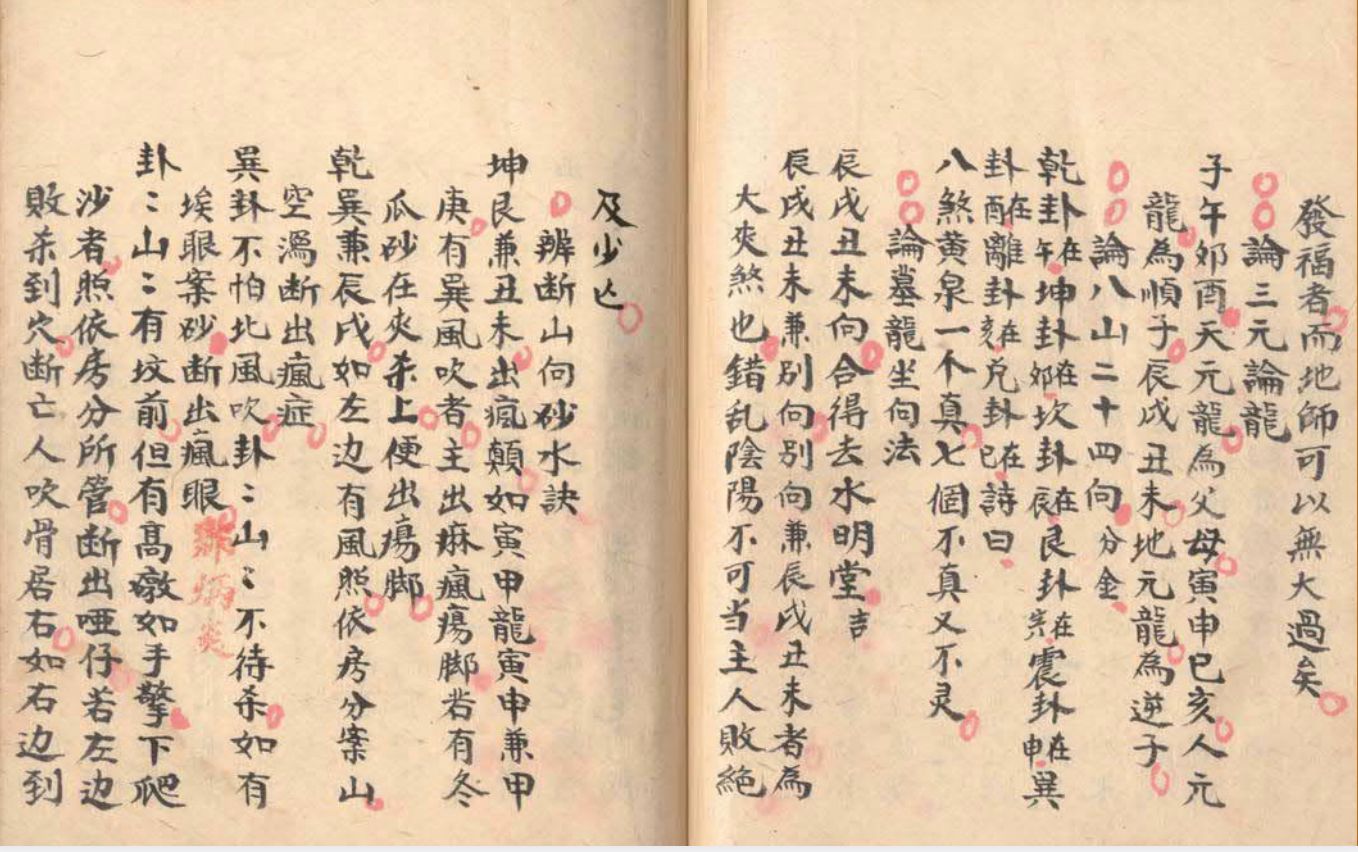 發福者而地師可以無大過矣
論三元論龍
子午郊酉天元龍為父母寅申巳亥人元
龍為順子辰戌丑未地元龍為逆子
論八山二十四向分金
乾卦在午坤卦在郊坎卦在辰艮卦在震卦在申巽
卦在酉離卦在亥兌卦在巳詩曰
八煞黄泉一个真七個不真又不灵
論墓龍坐向法
辰戌丑未向合得去水明堂吉
辰戌丑未兼别向别向兼辰戌丑未者為
大夾煞也錯乱陰陽不可当主人敗絶
及少亡
辨断山向砂水訣
坤艮兼丑未出瘋顛如寅甲龍寅申兼甲
庚有巽風吹者主出麻瘋瘍脚若有冬
瓜砂在夾杀上便出瘍脚
乾巽兼辰戌如左边有風照依房分案山
空㵝断出瘋症
巽卦不怕北風吹卦〻山〻不待杀如有
埃眼案砂断出瘋眼
卦〻山〻有坟前但有髙墩如手擎下爬
沙者照依房分所管断出哑仔若左边
敗杀到穴断亡人吹骨居右如右边到